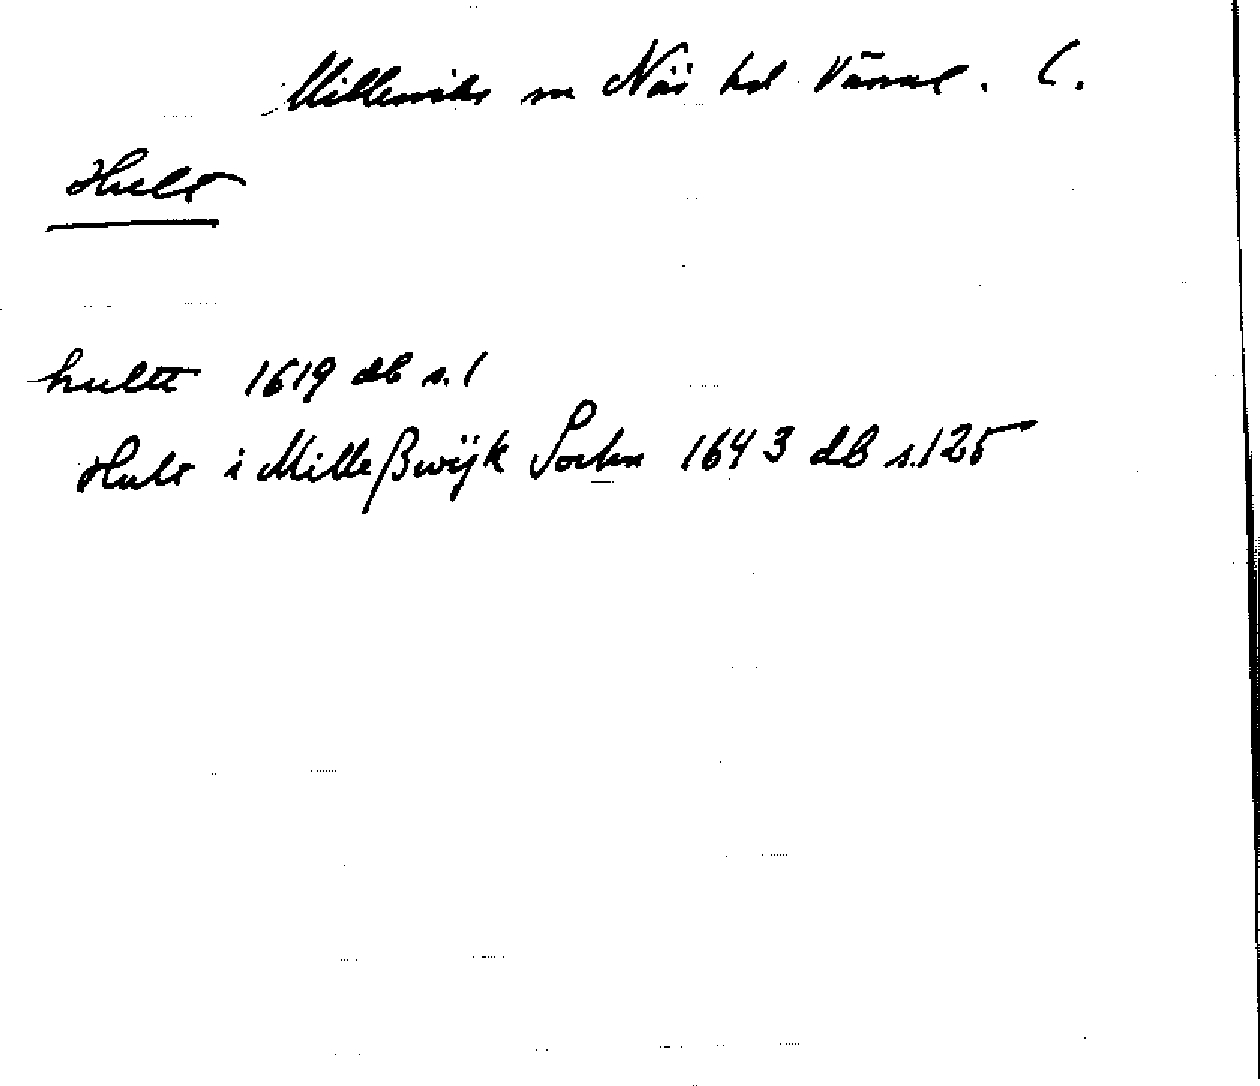 Millesviks sn Näs hd Värml. l.
Hult
hultt 1619 db s. 1
Hult i Milleßwijk Sochn 1643 db s. 125